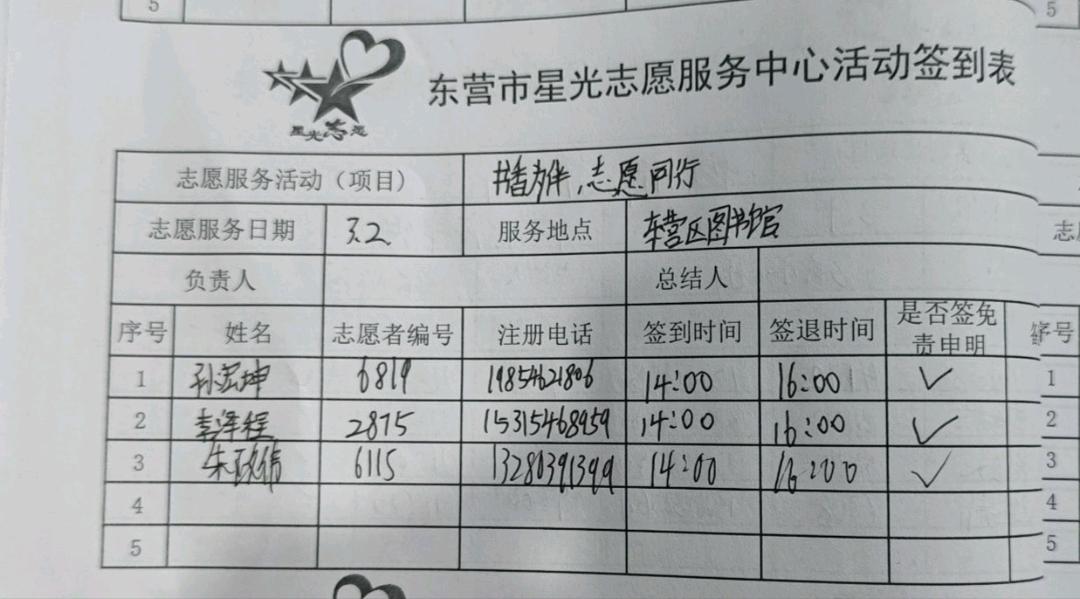 5
5
星光志愿
东营市星光志愿服务中心活动签到表
志愿服务活动（项目） 书香为伴，志愿同行
志愿服务日期 3.2 服务地点 东营区图书馆
志
负责人 总结人
序号 姓名 志愿者编号 注册电话 签到时间 签退时间 是否签免责申明 序号
1 孙 坤 6819 14:00 16:00 ✓ 1
2 李泽程 2875 15315468959 14:00 16:00 ✓ 2
3 朱政伟 6115 13280391399 14:00 16:00 ✓ 3
4 4
5 5